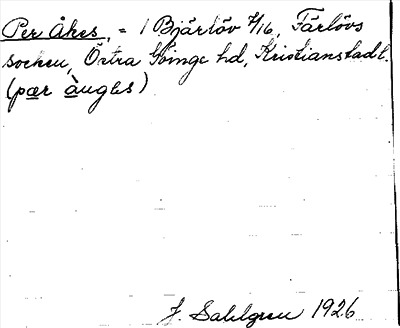 Per Åkes, = 1 Bjärlöv 7/16, Färlövs
socken, Östra Göinge hd, Kristianstad l.
(pær àugles)
J. Sahlgren 1926